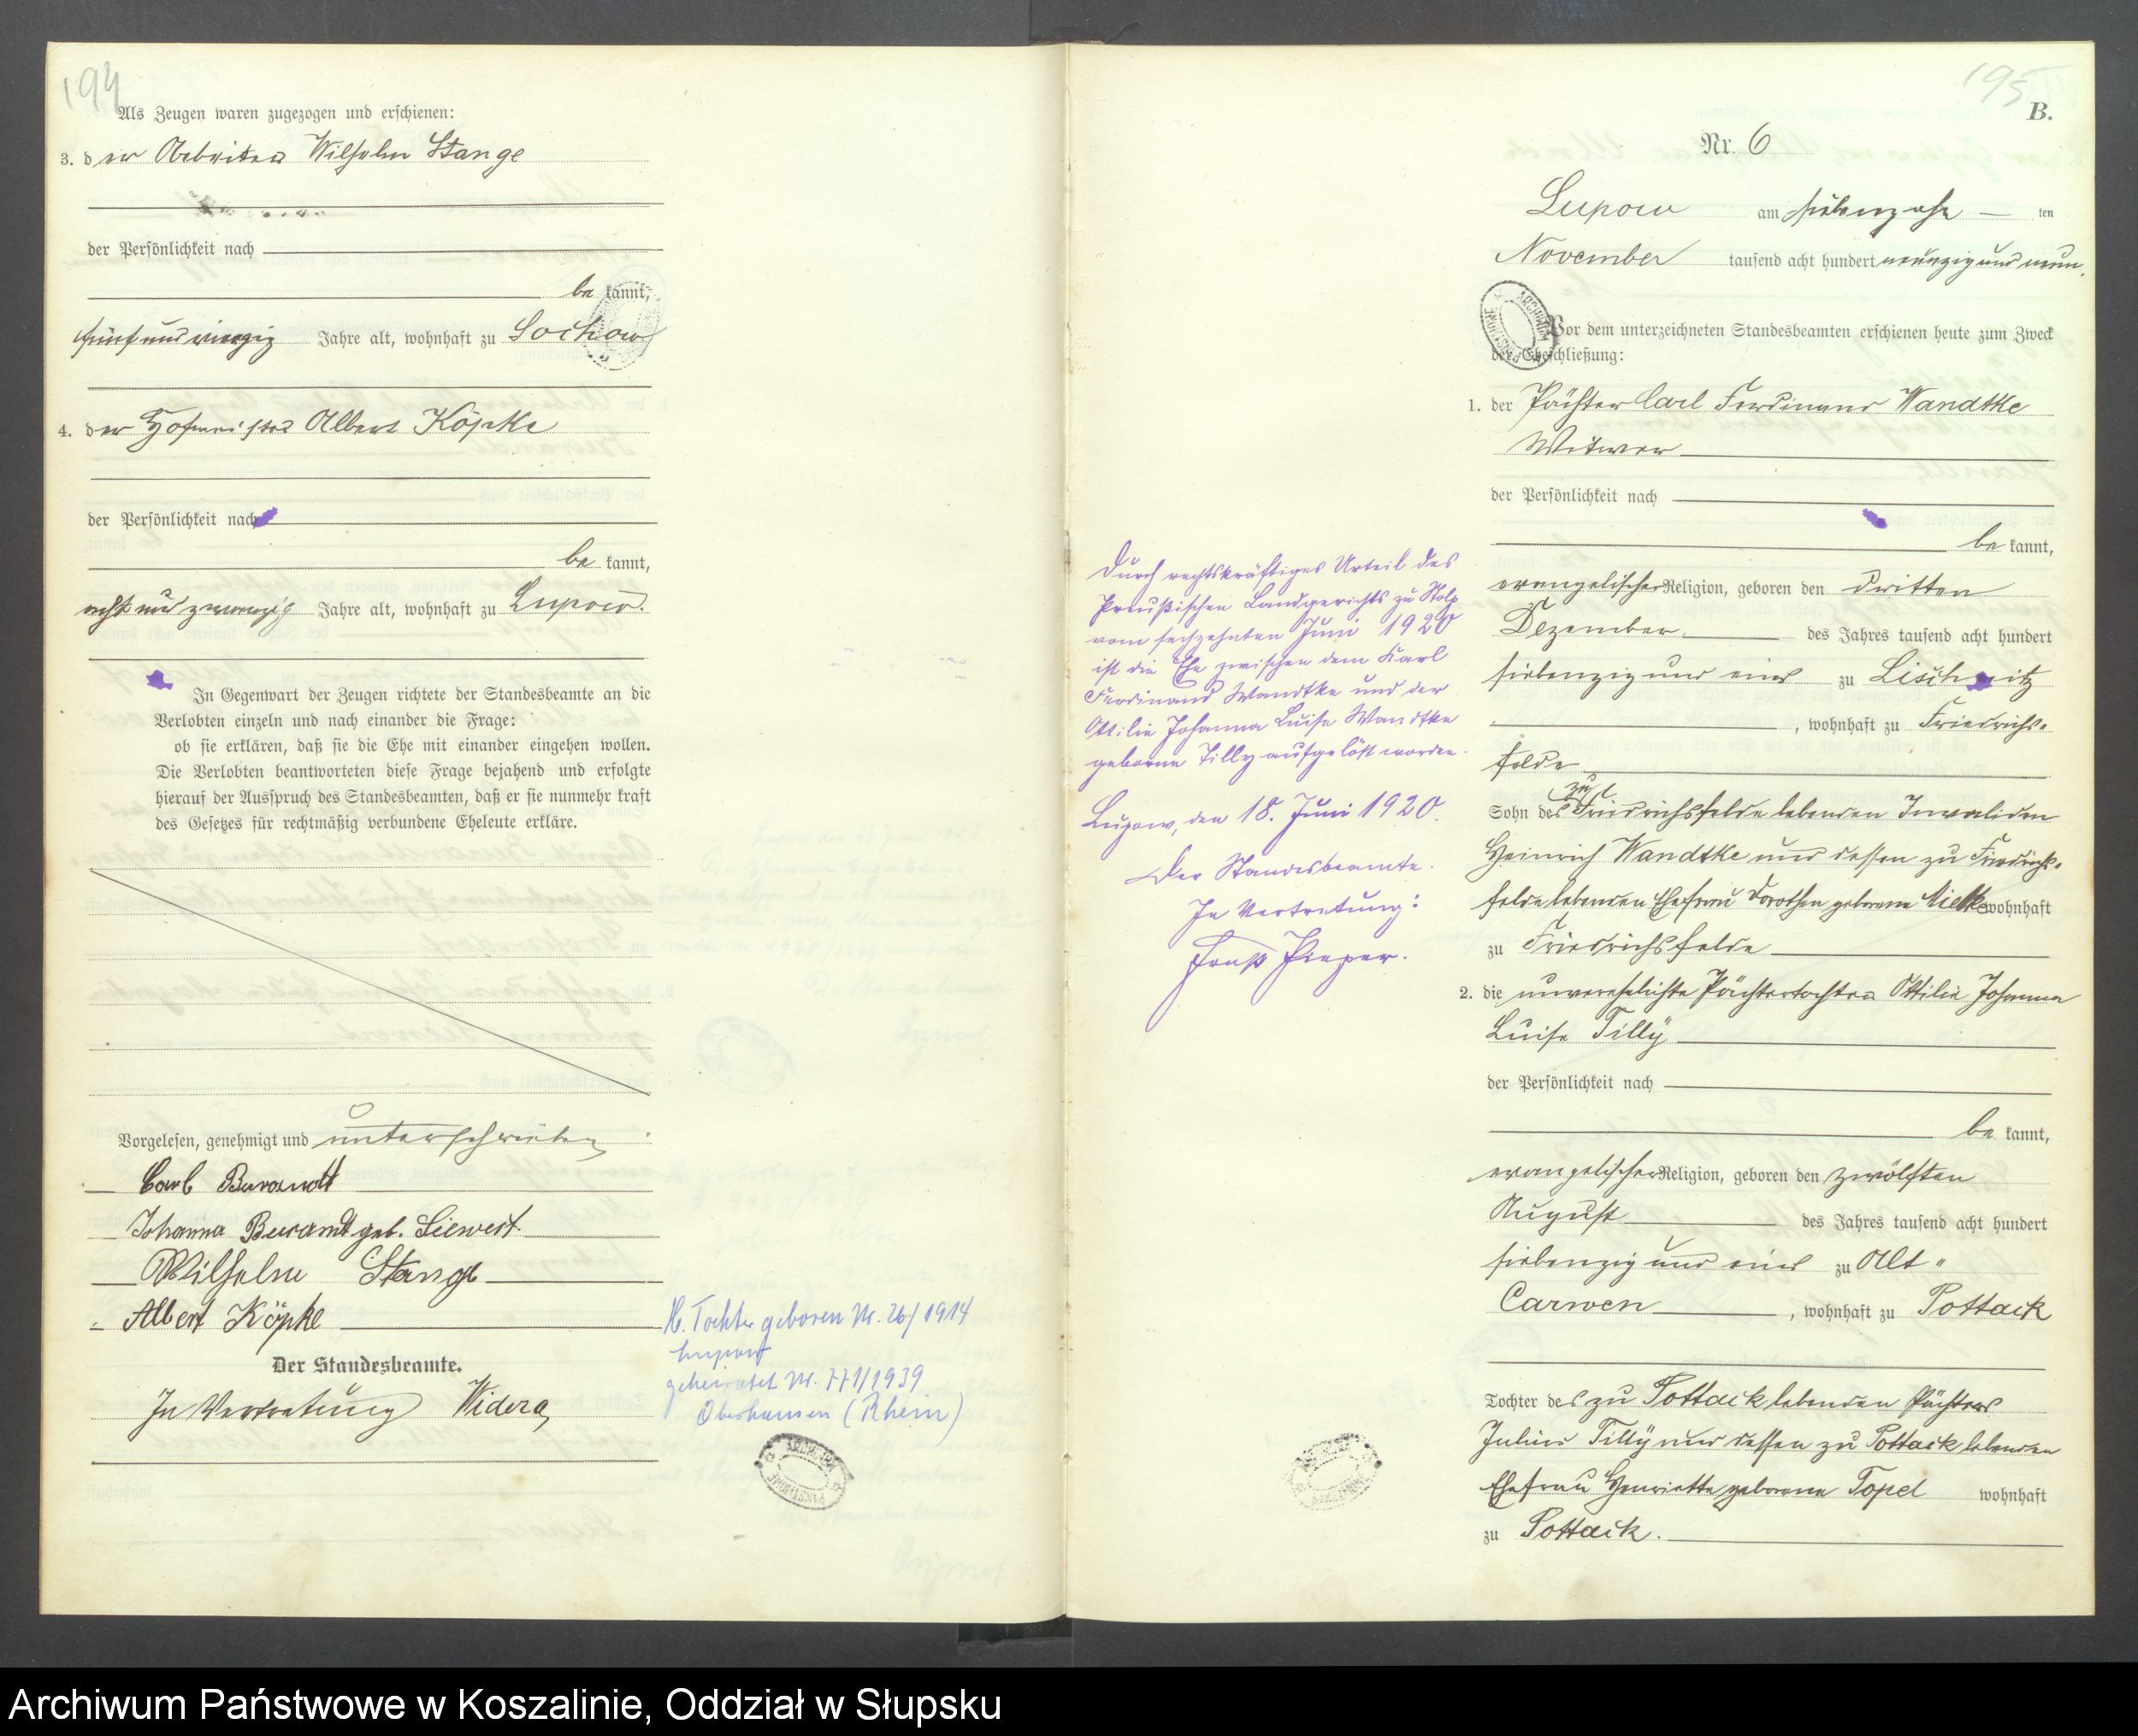 194
Als Zeugen waren zugezogen und erschienen:
3. der Arbeiter Wilhelm Stange
der Persönlichkeit nach
be kannt,
fünf und vierzig Jahre alt, wohnhaft zu Sochow
4. der Hofmeister Albert Köpke
der Persönlichkeit nach
be kannt,
acht und zwanzig Jahre alt, wohnhaft zu Lupow.
In Gegenwart der Zeugen richtete der Standesbeamte an die
Verlobten einzeln und nach einander die Frage:
ob sie erklären, daß sie die Ehe mit einander eingehen wollen.
Die Verlobten beantworteten diese Frage bejahend und erfolgte
hierauf der Ausspruch des Standesbeamten, daß er sie nunmehr kraft
des Gesetzes für rechtmäßig verbundene Eheleute erkläre.
Vorgelesen, genehmigt und unterschrieben
Carl Burandt
Johanna Burandt geb. Siewert.
Wilhelm Stange
Albert Köpke
Der Standesbeamte.
In Vertretung Widera
Tochter geboren Nr. 26/1914
Lupow
geheiratet Nr. 771/1939
Oberhausen (Rhein)
195
B.
Nr. 6
Lupow am siebenzehn ten
November tausend acht hundert neunzig und neun.
Vor dem unterzeichneten Standesbeamten erschienen heute zum Zweck
der Eheschließung:
1. der Pächter Carl Ferdinand Wandtke
Witwer
der Persönlichkeit nach
be kannt,
evangelischer Religion, geboren den dritten
Dezember des Jahres tausend acht hundert
siebenzig und eins zu Lischnitz
, wohnhaft zu Friedrichs-
felde
Sohn des zu Friedrichsfelde lebenden Invaliden
Heinrich Wandtke und dessen zu Friedrichs-
felde lebenden Ehefrau Dorothea geborene Mielke wohnhaft
zu Friedrichsfelde
2. die unverehelichte Pächtertochter Ottilie Johanna
Luise Tilly
der Persönlichkeit nach
be kannt,
evangelischer Religion, geboren den zwölften
August des Jahres tausend acht hundert
siebenzig und eins zu Alt-
Carwen, wohnhaft zu Pottack
Tochter des zu Pottack lebenden Pächters
Julius Tilly und dessen zu Pottack lebenden
Ehefrau Henriette geborene Topel wohnhaft
zu Pottack.
Durch rechtskräftiges Urteil des
Preußischen Landgerichts zu Stolp
vom sechzehnten Juni 1920
ist die Ehe zwischen dem Karl
Ferdinand Wandtke und der
Ottilie Johanna Luise Wandtke
geborne Tilly aufgelöst worden.
Lupow, den 18. Juni 1920.
Der Standesbeamte.
In Vertretung:
Ernst Pieper.
Archiwum Państwowe w Koszalinie, Oddział w Słupsku